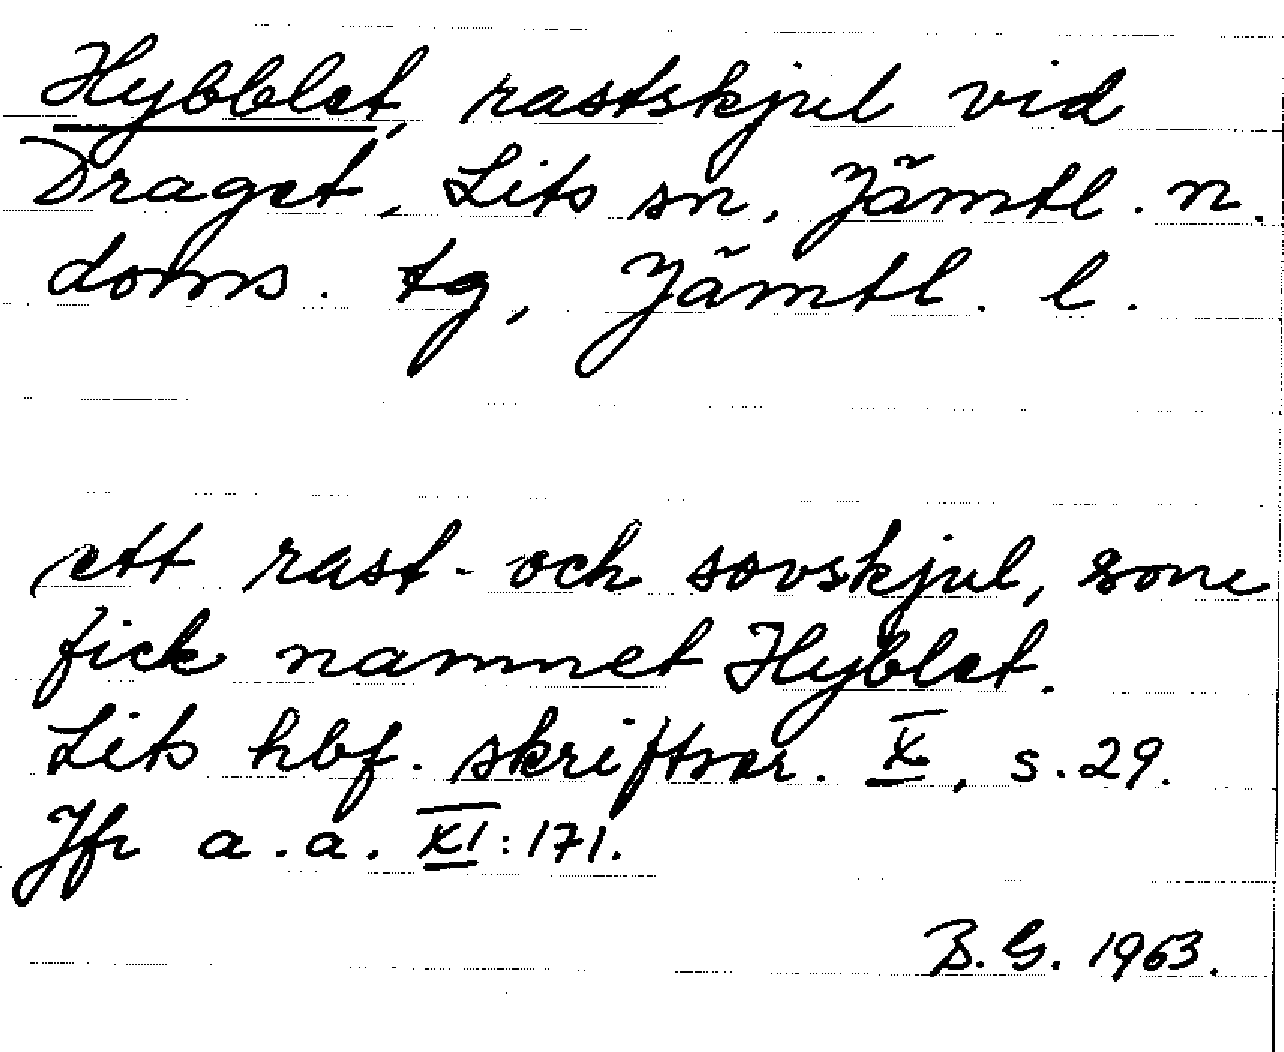 Hybblet, rastskjul vid
Draget, Lits sn, Jämtl. n.
doms. tg, Jämtl. l.
ett rast- och sovskjul, som
fick namnet Hyblet.
Lits hbf. skriftser. X, s. 29.
Jfr a.a. XI:171.
B.G. 1963.